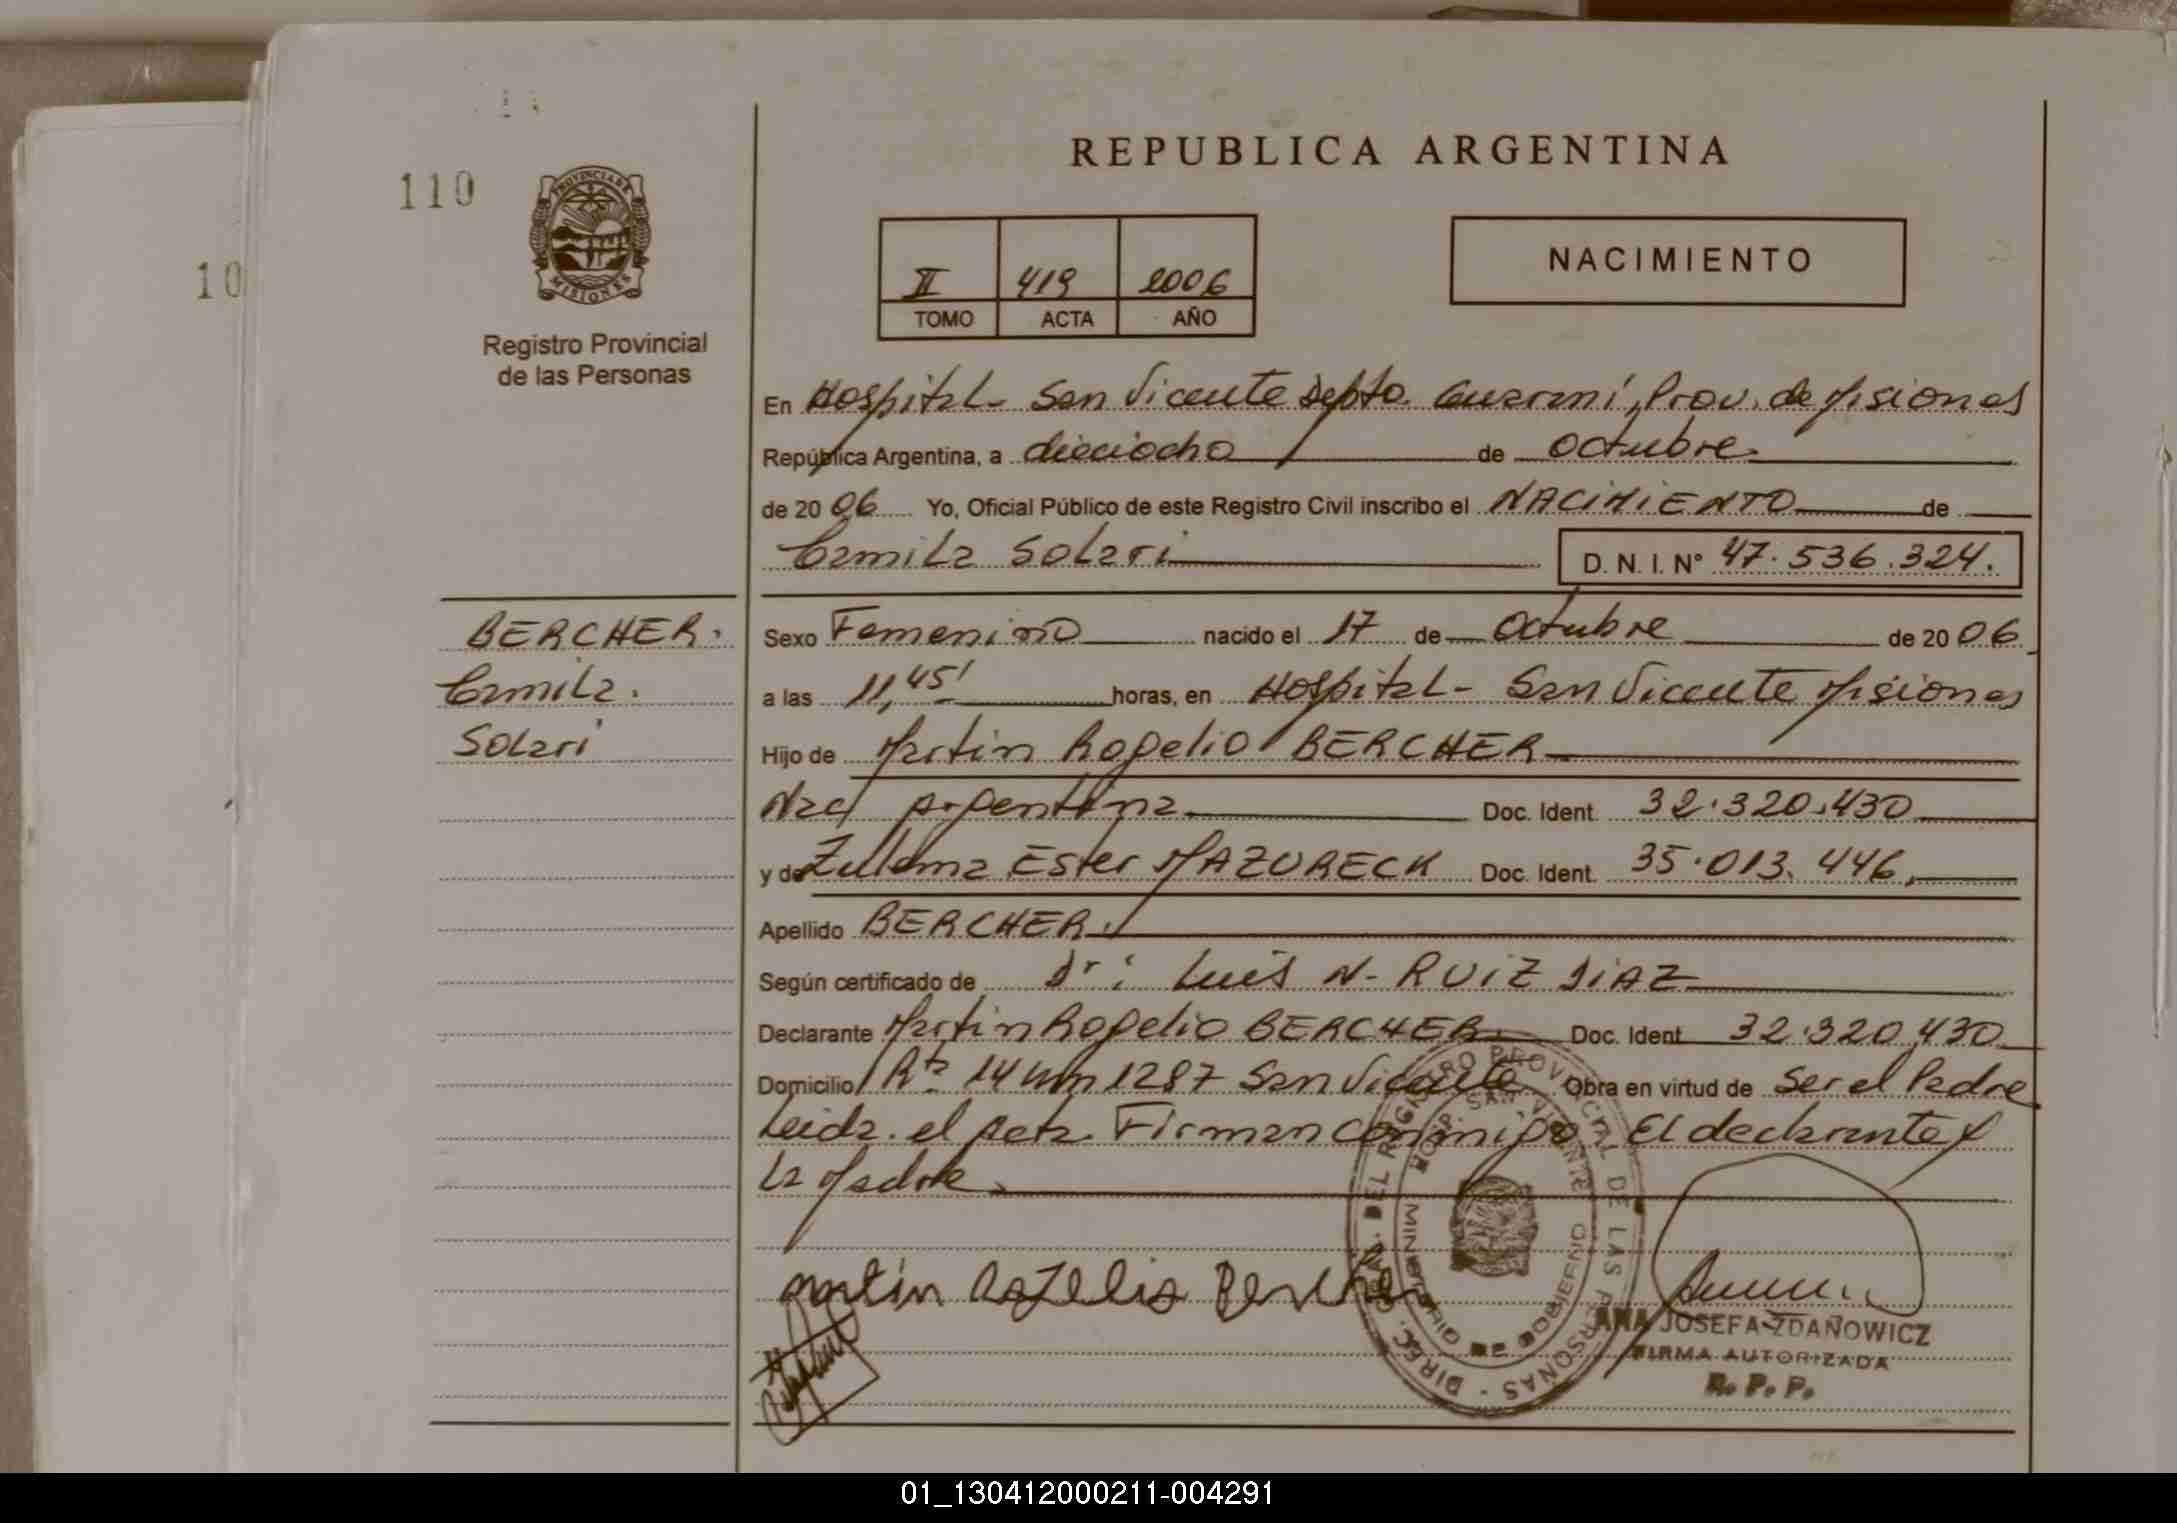 REPUBLICA ARGENTINA
110
PROVINCIA DE
MISIONES
10
II 419 2006
TOMO ACTA AÑO
NACIMIENTO
Registro Provincial
de las Personas
En Hospital - San Vicente Depto. Guaraní, Prov. de Misiones
República Argentina, a dieciocho de octubre
de 2006 Yo, Oficial Público de este Registro Civil inscribo el NACIMIENTO de
Camila Solari D. N. I. N° 47.536.324.
BERCHER.
Camila.
Solari
Sexo Femenino nacido el 17 de octubre de 2006
a las 11,45' horas, en Hospital - San Vicente Misiones
Hijo de Martin Rogelio BERCHER
Nac/ Argentina Doc. Ident. 32.320.430
y de Zulema Ester MAZURECK Doc. Ident. 35.013.446.
Apellido BERCHER.
Según certificado de Dr: Luis N. RUIZ DIAZ
Declarante Martin Rogelio BERCHER Doc. Ident 32.320.430
Domicilio Rta 14 Km 1287 San Vicente Obra en virtud de Ser el Padre
Leida el Acta Firman conmigo El declarante y
la Madre.
Martin Rogelio Bercher
DIREC. GRAL. DEL REGISTRO PROVINCIAL DE LAS PERSONAS
HOSP. SAN VICENTE
MINISTERIO DE GOBIERNO
ANA JOSEFA ZDANOWICZ
FIRMA AUTORIZADA
R. P. P.
01_130412000211-004291